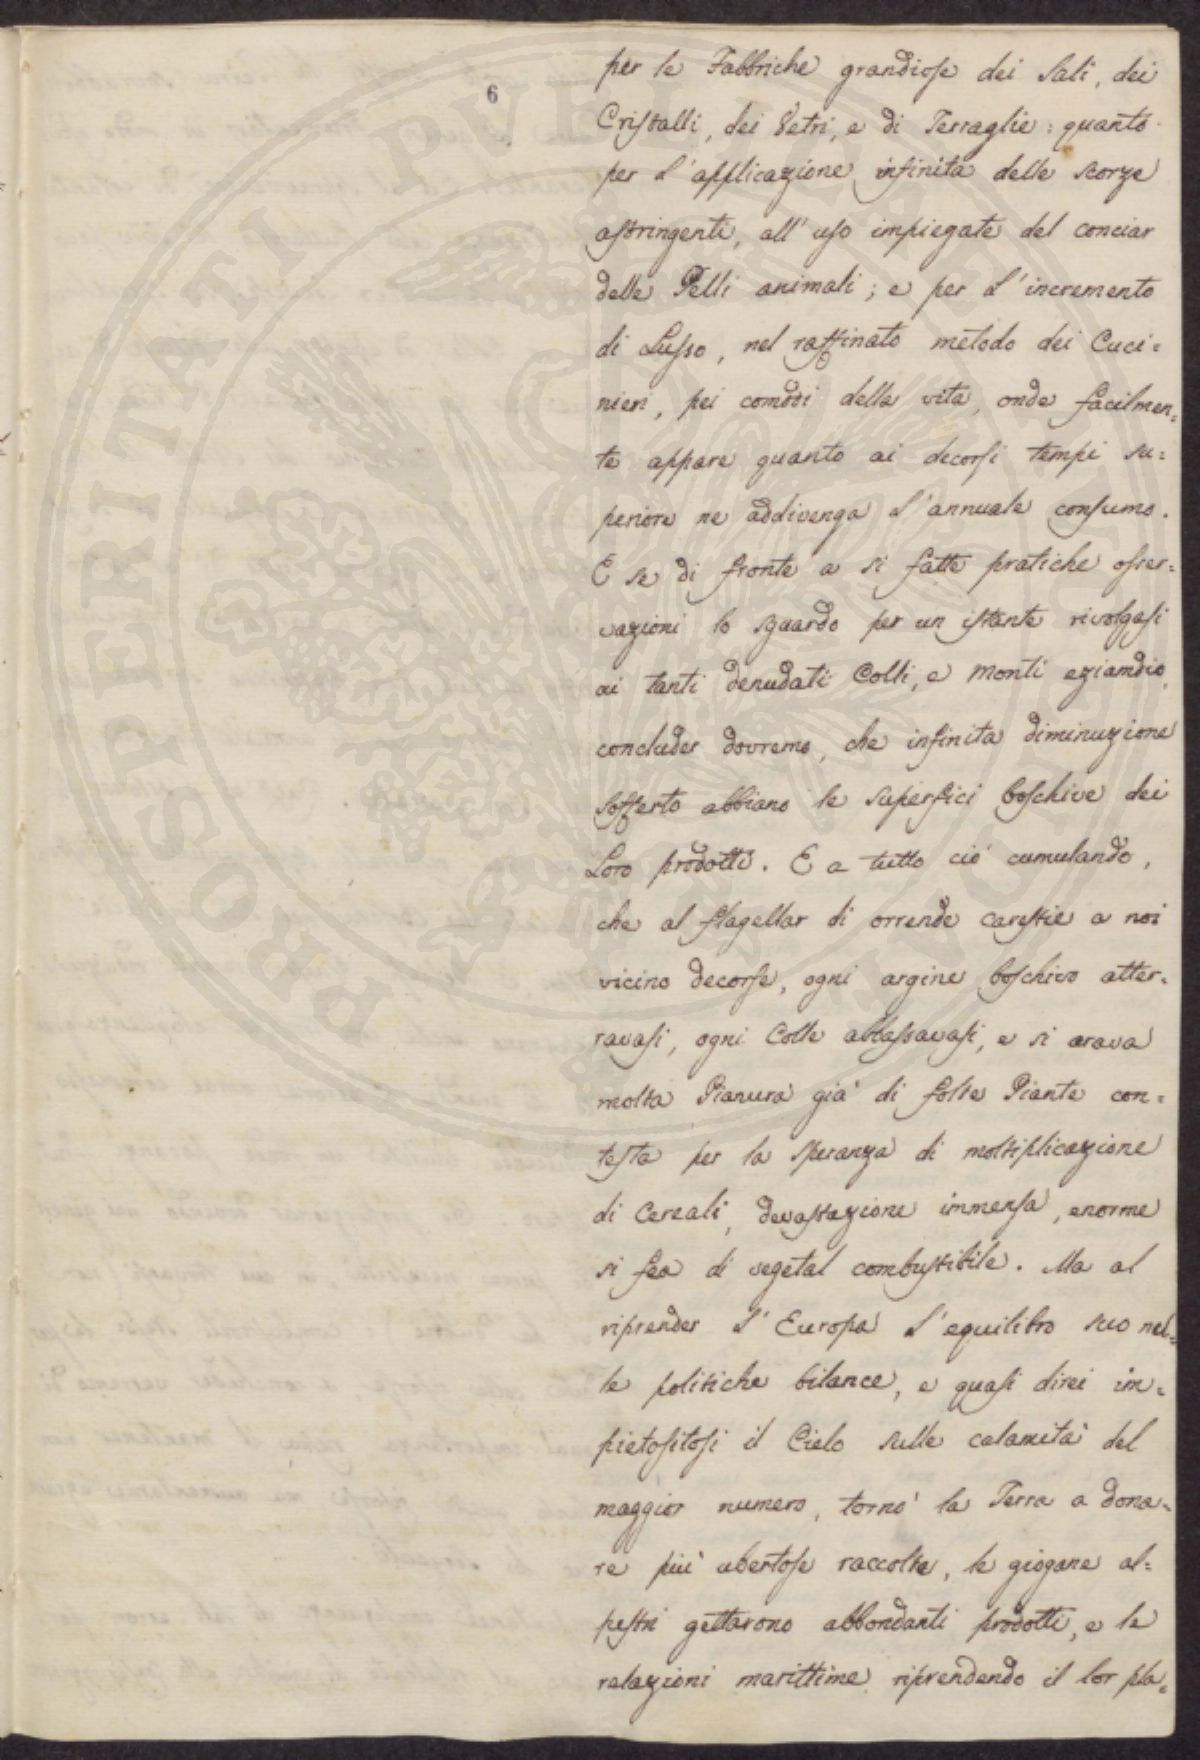 6
per le Fabbriche grandiose dei Sali, dei
Cristalli, dei Vetri, e di Terraglie: quanto
per l'applicazione infinita delle scorze
astringenti, all'uso impiegate del conciar
delle Pelli animali; e per l'incremento
di Lusso, nel raffinato metodo dei Cuci=
nieri, pei comodi della vita, onde facilmen=
te appare quanto ai decorsi tempi su=
periore ne addivenga l'annuale consumo.
E se di fronte a si fatte pratiche osser=
vazioni lo sguardo per un istante rivolgasi
ai tanti denudati Colli, e Monti eziamdio,
concluder dovremo, che infinita diminuzione
sofferto abbiano le superfici boschive dei
Loro prodotti. E a tutto ciò cumulando,
che al flagellar di orrende carestie a noi
vicino decorse, ogni argine boschivo atter=
ravasi, ogni Colle abbassavasi, e si arava
molta Pianura già di folte Piante con=
testa per la speranza di moltiplicazione
di Cereali, devastazione immensa, enorme
si fea di vegetal combustibile. Ma al
riprender l'Europa l'equilibro suo nel=
le politiche bilance, e quasi direi im=
pietositosi il Cielo sulle calamità del
maggior numero, tornò la Terra a dona=
re più ubertose raccolte, le giogane al=
pestri gettarono abbondanti prodotti, e le
relazioni marittime riprendendo il lor pla=
PROSPERITATI PVBLICAE